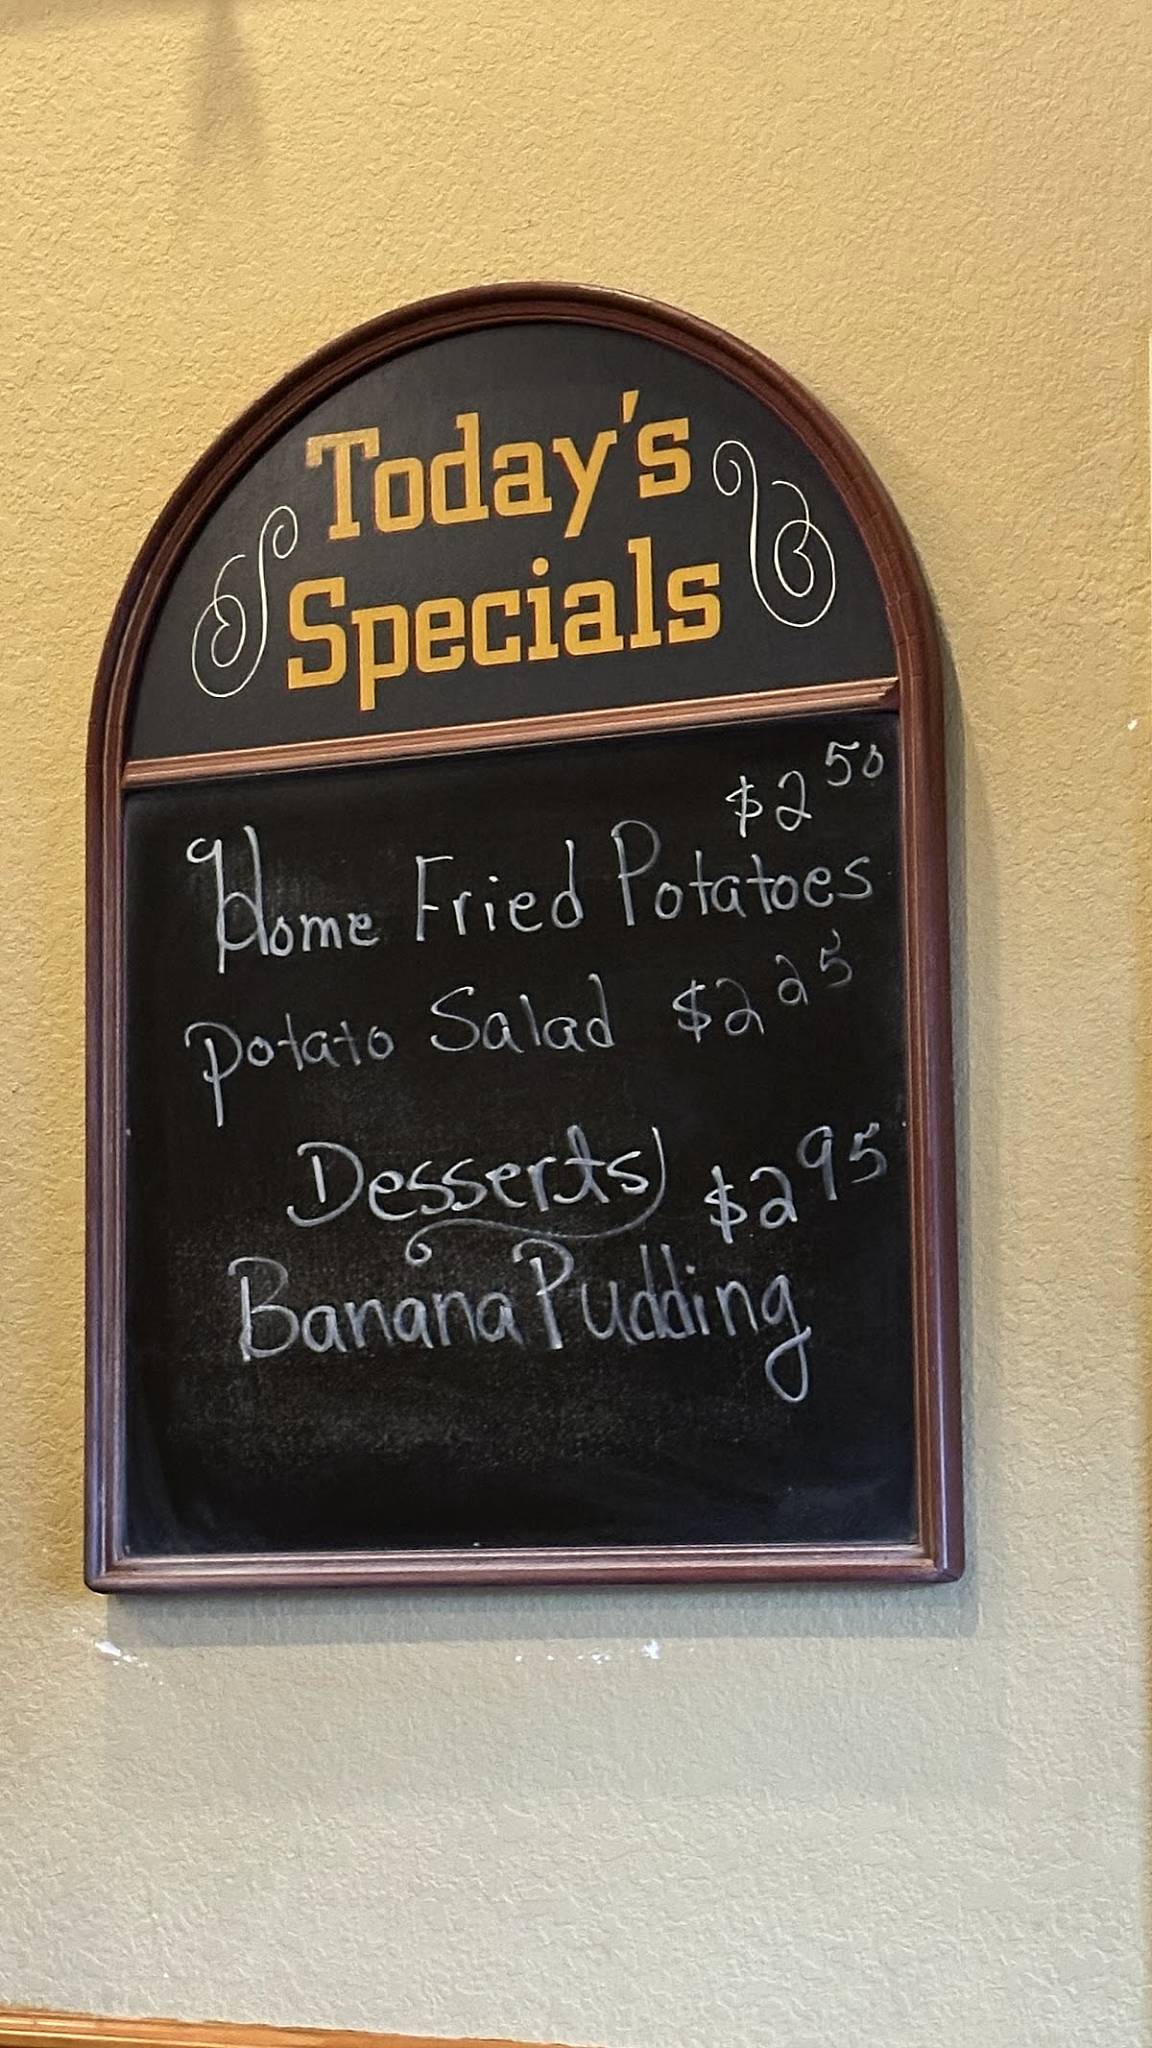 Today's
Specials
$2 50
Home Fried Potatoes
Potato Salad $2 25
Desserts $2 95
Banana Pudding